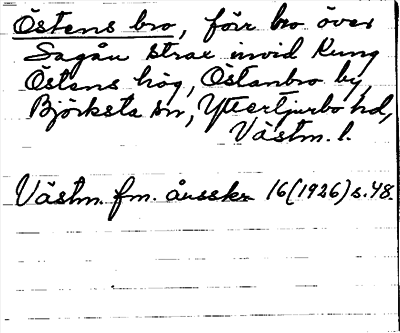 Östens bro, förr bro över
Sagån strax invid Kung
Östens hög, Östanbro by,
Björksta sn, Yttertjurbo hd,
Västm. l.
Västm. fm. årsskr 16(1926) s. 48.